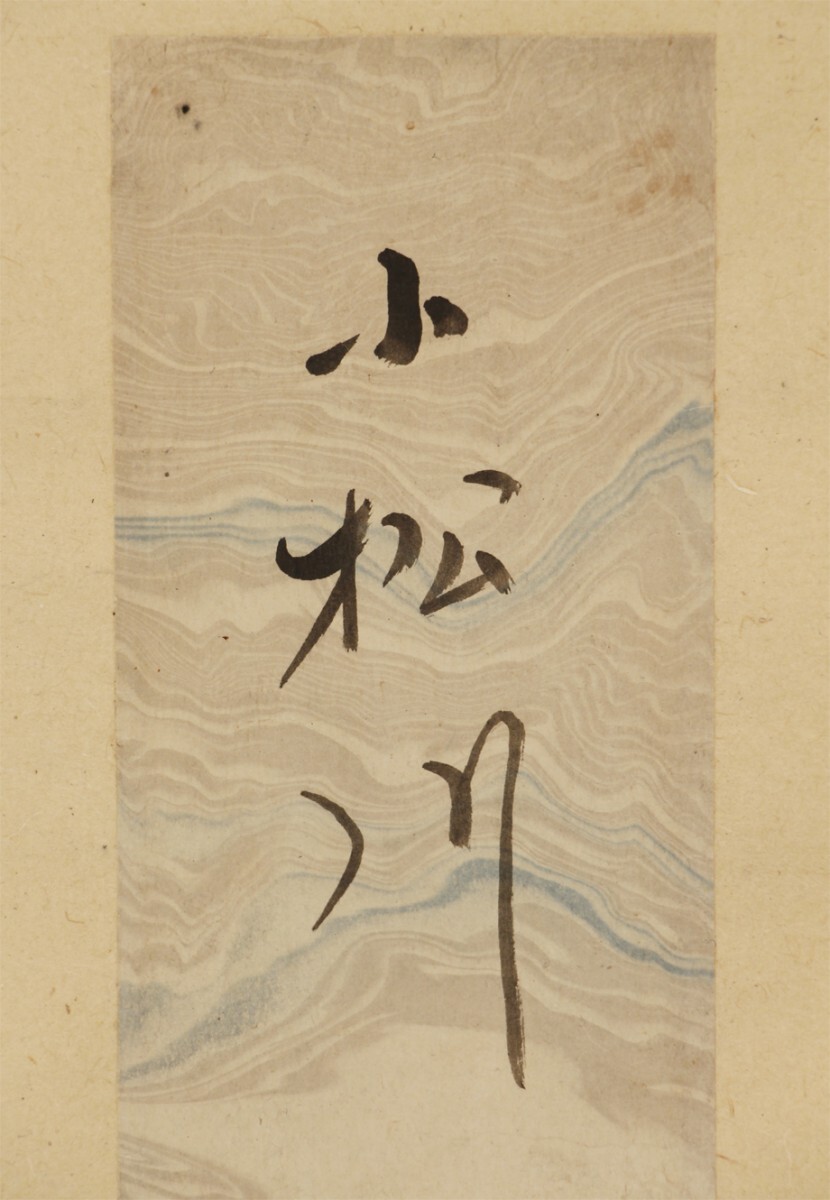 小松川